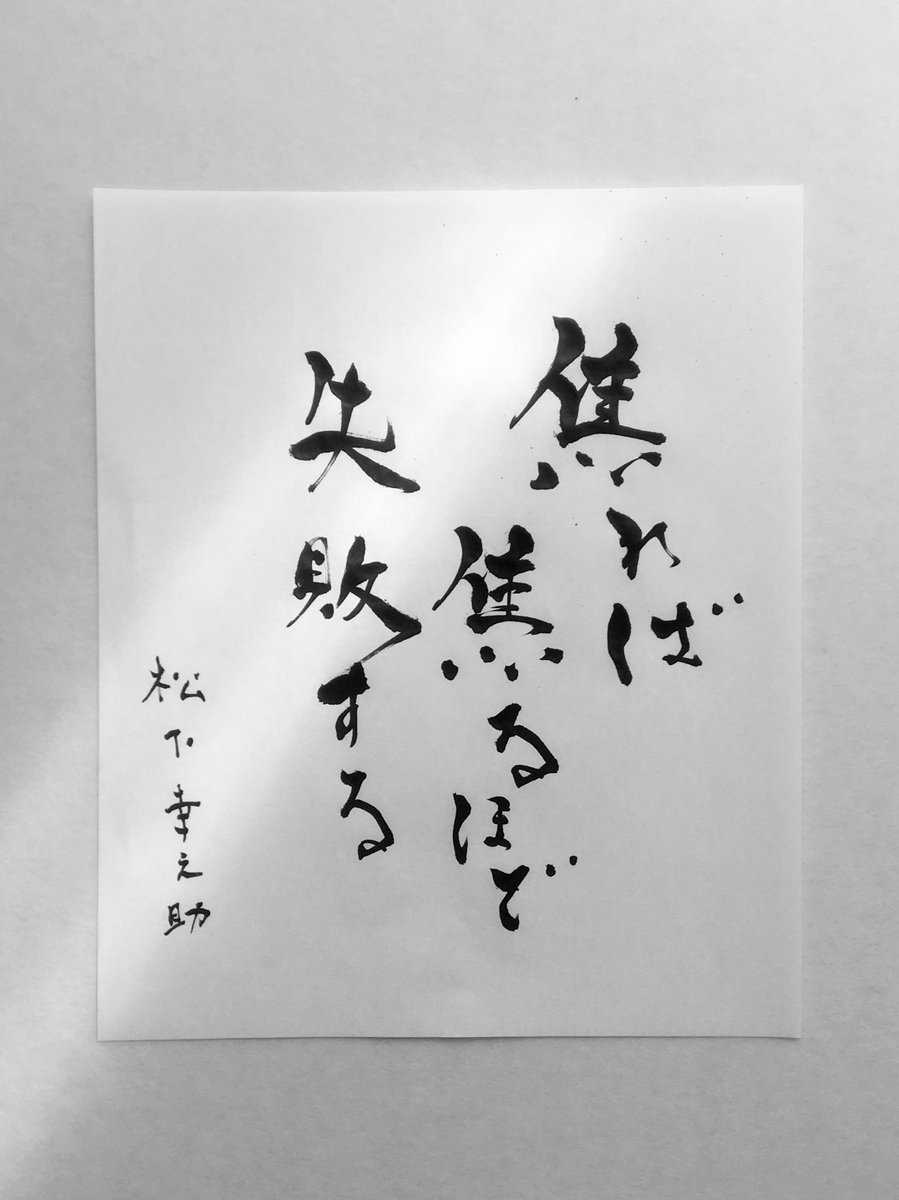 焦れば
焦るほど
失敗する
松下幸之助